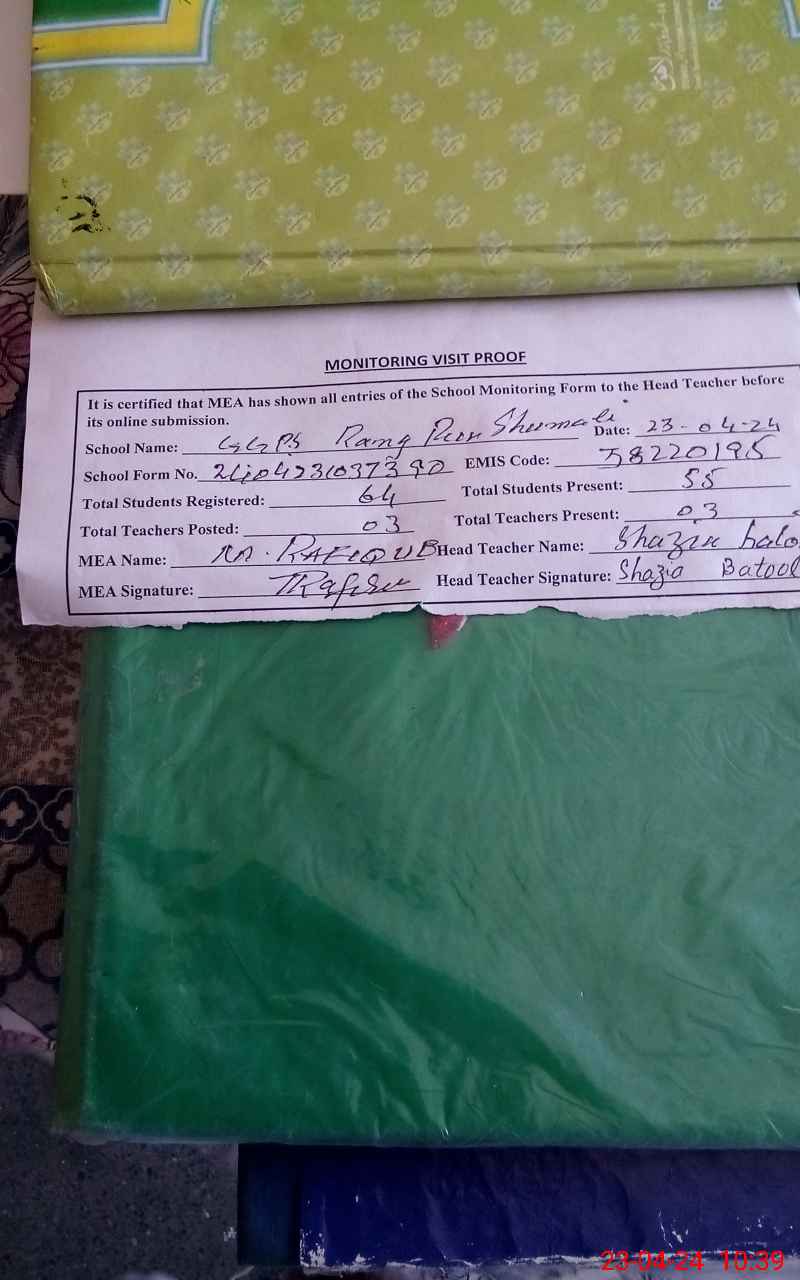 MONITORING VISIT PROOF
It is certified that MEA has shown all entries of the School Monitoring Form to the Head Teacher before
its online submission.
School Name: GGPS Rang Pur Shumali Date: 23-04-24
School Form No. EMIS Code: 38220195
Total Students Registered: 64 Total Students Present: 55
Total Teachers Posted: 03 Total Teachers Present: 03
MEA Name: M. RAFIQUE Head Teacher Name: Shazia bato
MEA Signature: Head Teacher Signature: Shazia Batool
23-04-24 10:39